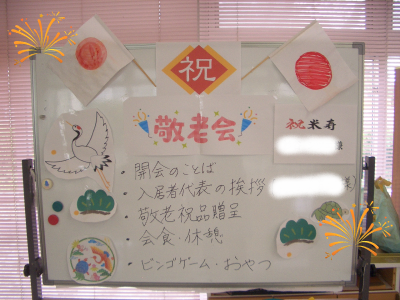 祝
敬老会
祝米寿
様
・開会のことば
・入居者代表の挨拶
様)
・敬老祝品贈呈
・会食・休憩
・ビンゴゲーム・おやつ